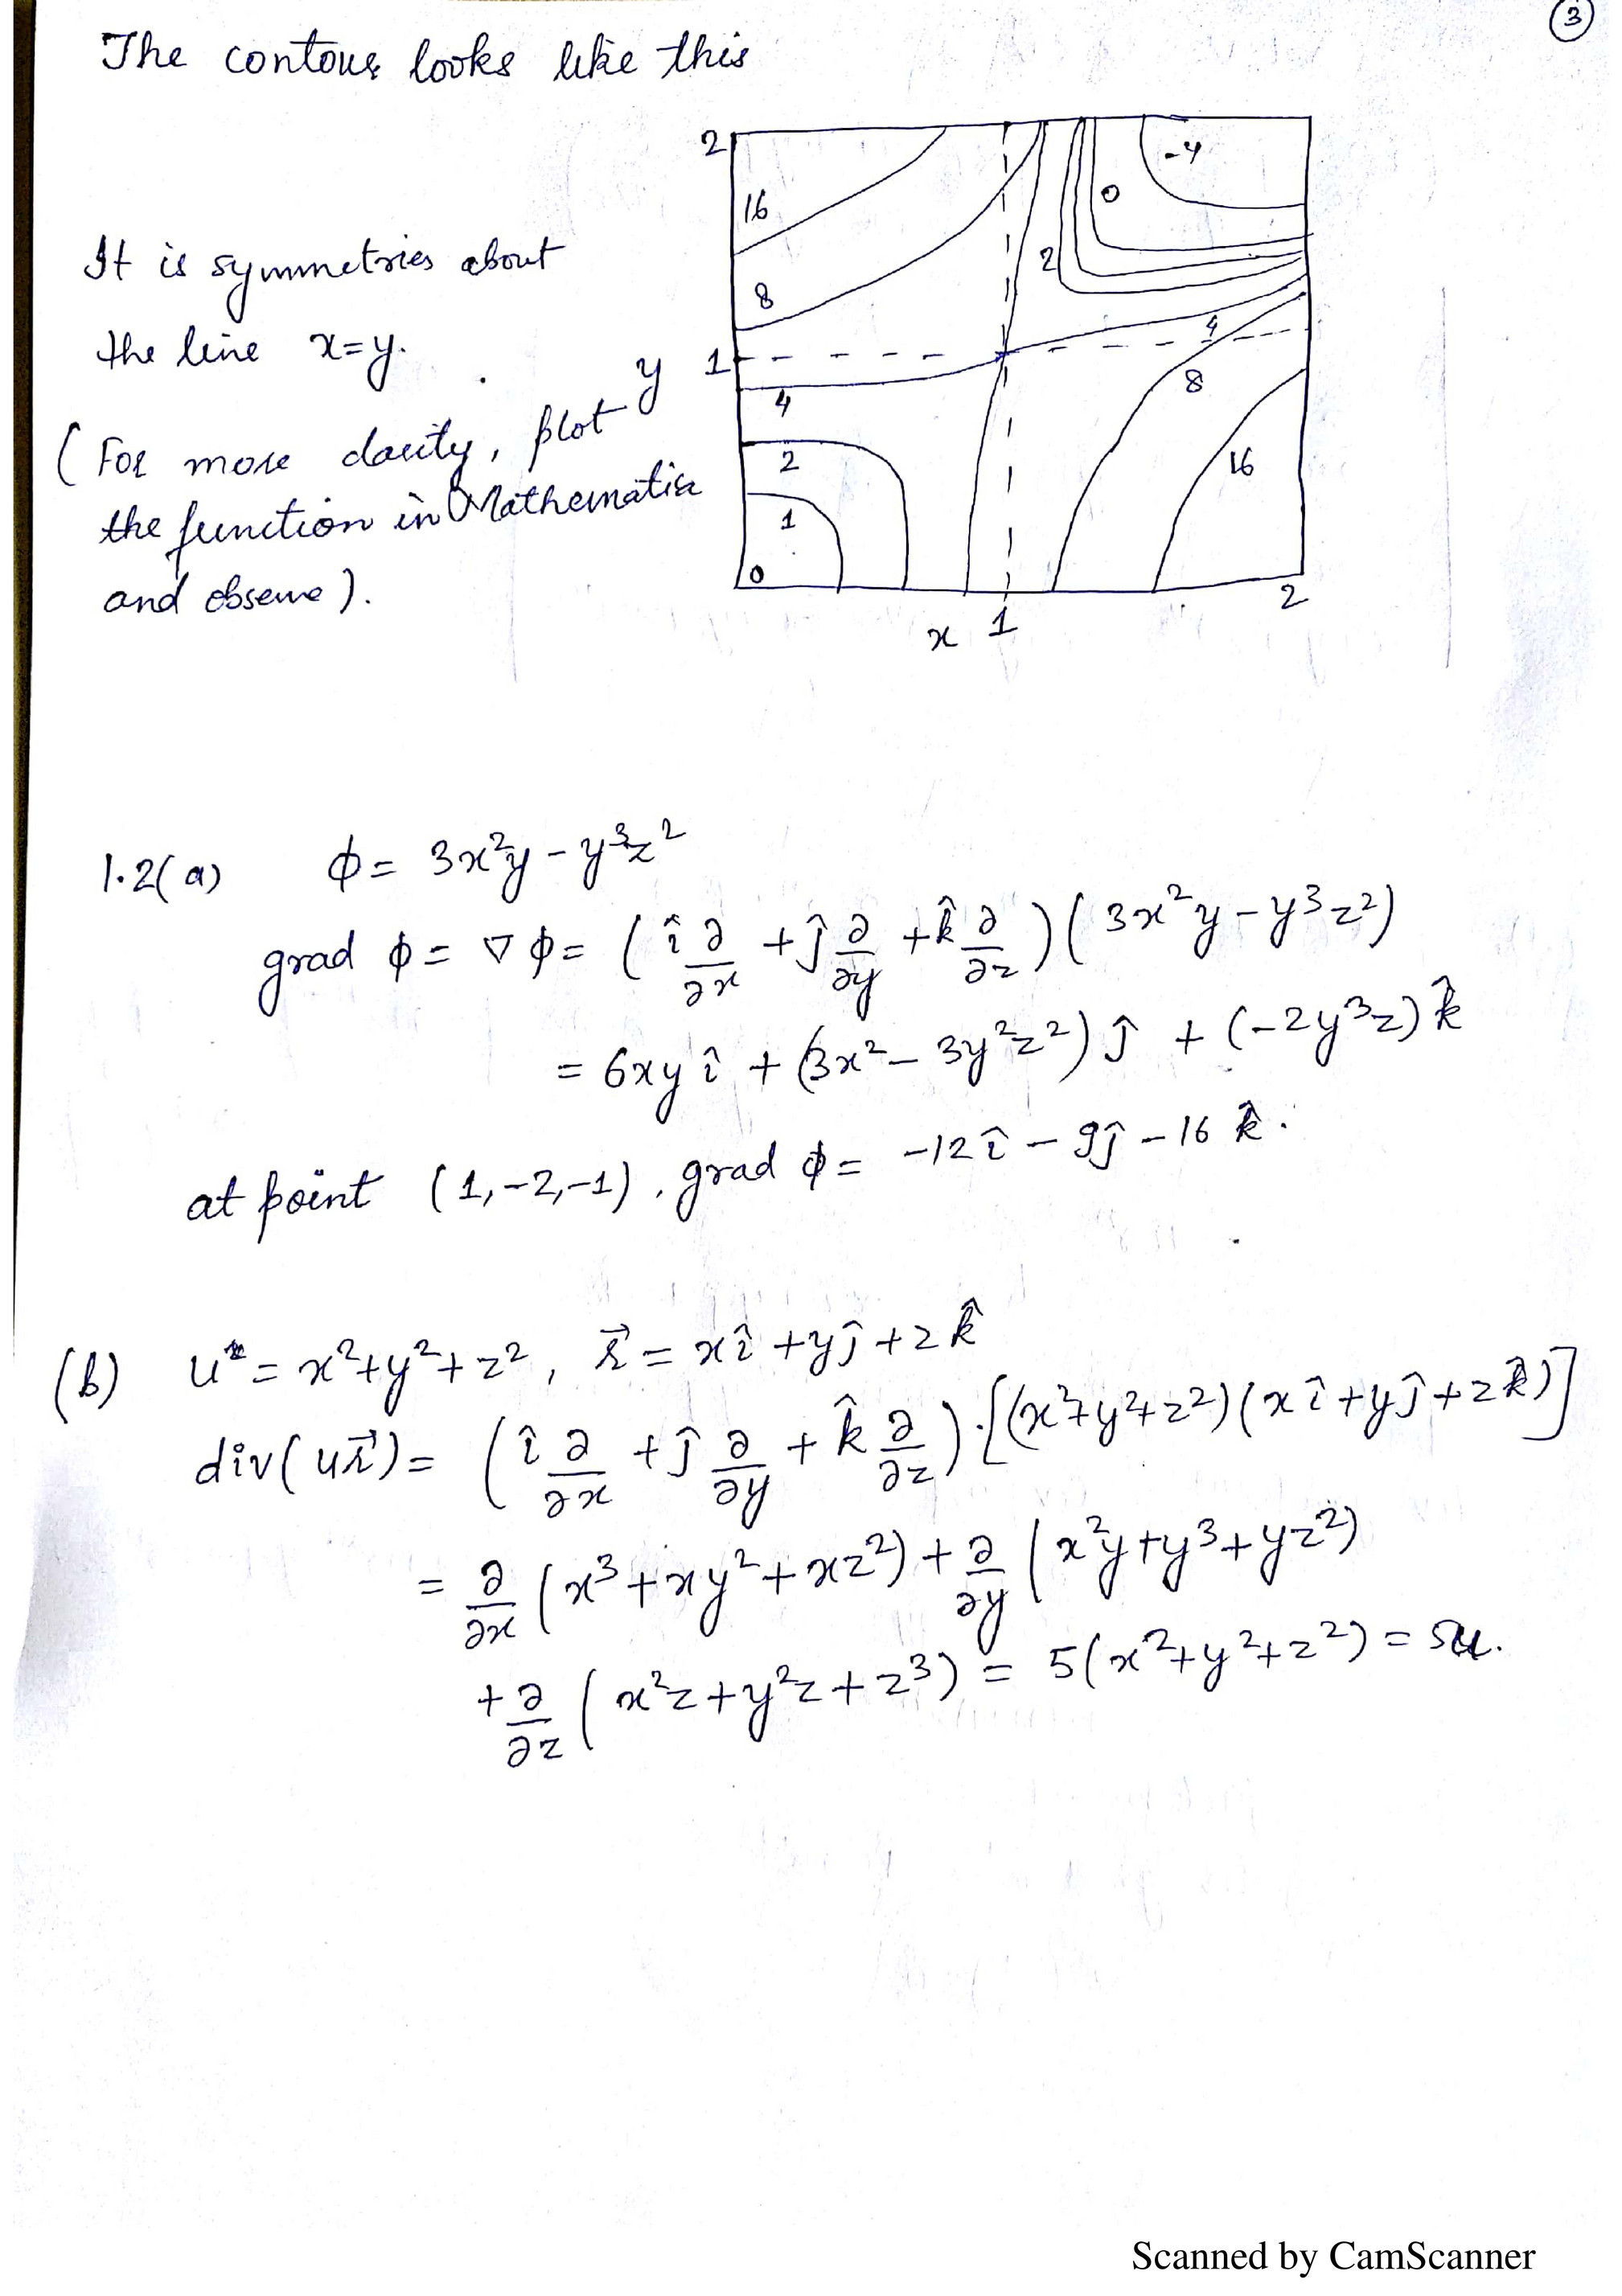 ③
The contour looks like this
It is symmetries about
the line x=y.
(For more clarity, plot
the function in Mathematica
and observe).
2
16
8
y 1
4
2
1
0
-4
0
2
4
8
16
x 1 2
1.2(a) ϕ = 3x²y - y³z²
grad ϕ = ∇ϕ = (î ∂/∂x + ĵ ∂/∂y + k̂ ∂/∂z)(3x²y - y³z²)
= 6xy î + (3x² - 3y²z²) ĵ + (-2y³z) k̂
at point (1,-2,-1), grad ϕ = -12 î - 9ĵ - 16 k̂.
(b) u = x²+y²+z², r⃗ = xî + yĵ + z k̂
div(ur⃗) = (î ∂/∂x + ĵ ∂/∂y + k̂ ∂/∂z)·[(x²+y²+z²)(xî + yĵ + zk̂)]
= ∂/∂x (x³+xy²+xz²) + ∂/∂y (x²y+y³+yz²)
+ ∂/∂z (x²z+y²z+z³) = 5(x²+y²+z²) = 5u.
Scanned by CamScanner